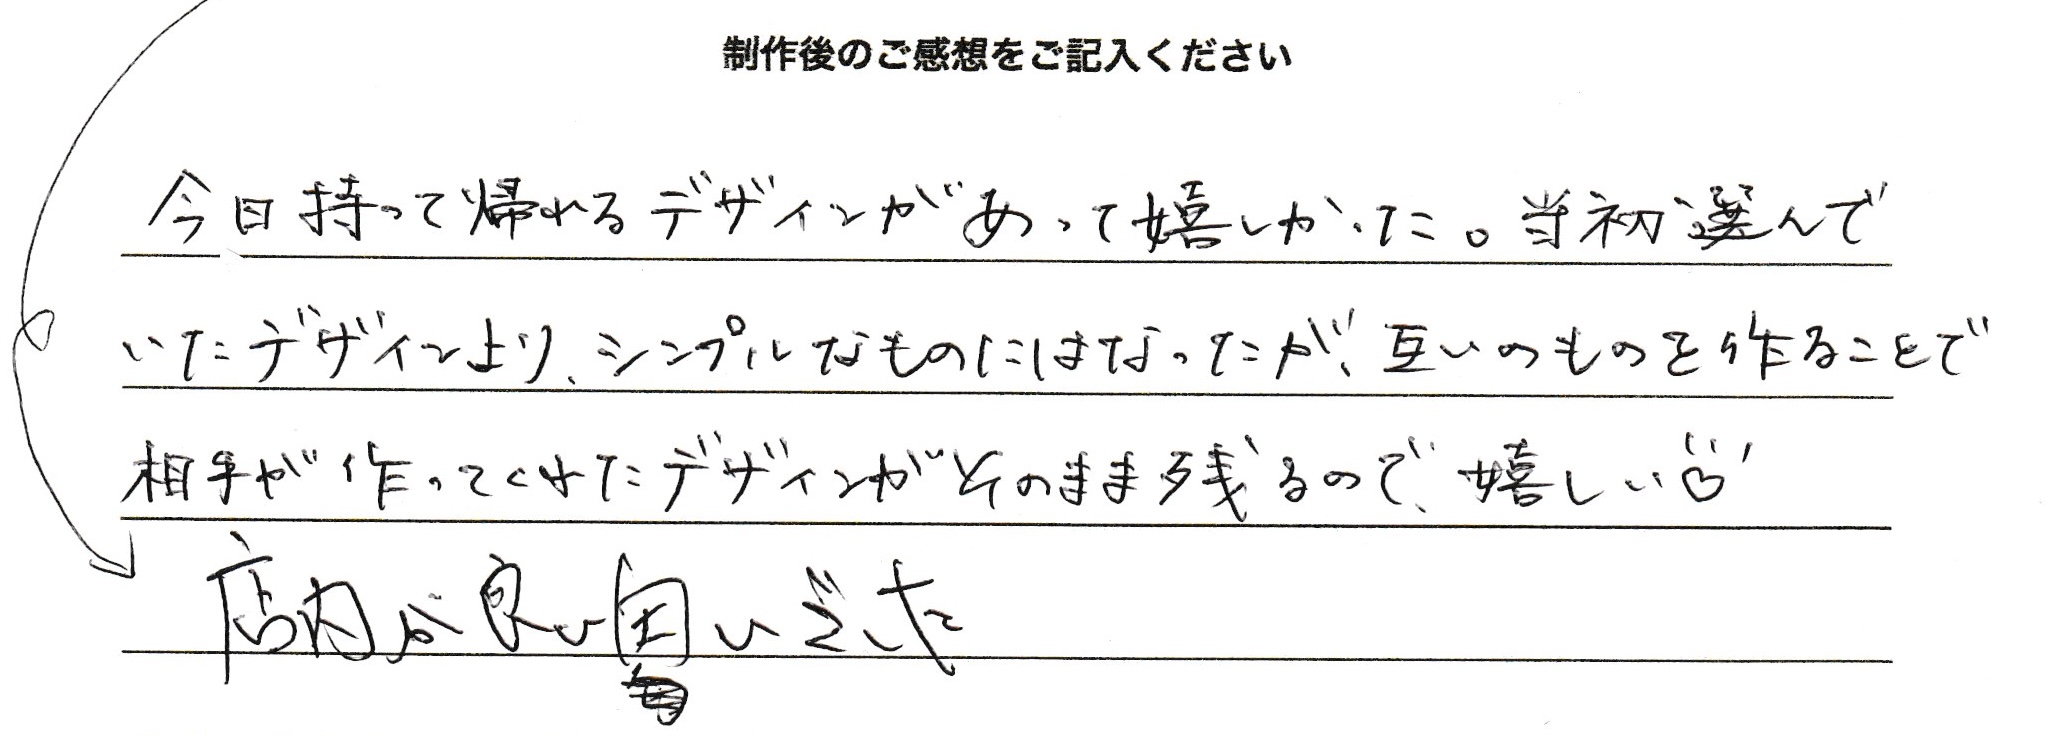 制作後のご感想をご記入ください
今日持って帰れるデザインがあって嬉しかった。当初選んで
いたデザインより、シンプルなものにはなったが、互いのものを作ることで
相手が作ってくれたデザインがそのまま残るので、嬉しい♡
店内が良い匂いでした